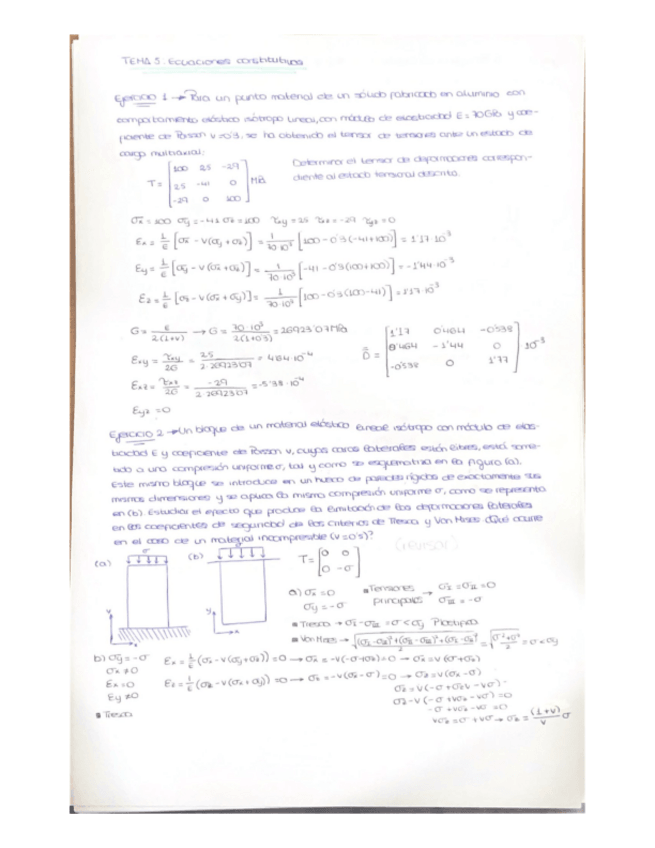 TEMA 5: Ecuaciones constitutivas
Ejercicio 1 → Para un punto material de un sólido fabricado en aluminio con
comportamiento elástico isótropo lineal, con módulo de elasticidad E = 70GPa y coe-
ficiente de Poisson ν=0'3, se ha obtenido el tensor de tensiones ante un estado de
carga multiaxial:
T = [100 25 -29; 25 -41 0; -29 0 100] MPa
Determinar el tensor de deformaciones correspon-
diente al estado tensional descrito.
σx = 100 σy = -41 σz = 100 τxy = 25 τxz = -29 τyz = 0
Ex = 1/E [σx - ν(σy + σz)] = 1/70·10³ [100 - 0'3(-41+100)] = 1'17·10⁻³
Ey = 1/E [σy - ν(σx + σz)] = 1/70·10³ [-41 - 0'3(100+100)] = -1'44·10⁻³
Ez = 1/E [σz - ν(σx + σy)] = 1/70·10³ [100 - 0'3(100-41)] = 1'17·10⁻³
G = E/2(1+ν) → G = 70·10³/2(1+0'3) = 26923'07MPa
Exy = τxy/2G = 25/2·26923'07 = 4'64·10⁻⁴
D = [1'17 0'464 -0'538; 0'464 -1'44 0; -0'538 0 1'17] ·10⁻³
Exz = τxz/2G = -29/2·26923'07 = -5'38·10⁻⁴
Eyz = 0
Ejercicio 2 → Un bloque de un material elástico lineal isótropo con módulo de elas-
ticidad E y coeficiente de Poisson ν, cuyas caras laterales están libres, está some-
tido a una compresión uniforme σ, tal y como se esquematiza en la figura (a).
Este mismo bloque se introduce en un hueco de paredes rígidas de exactamente sus
mismas dimensiones y se aplica la misma compresión uniforme σ, como se representa
en (b). Estudiar el efecto que produce la limitación de las deformaciones laterales
en los coeficientes de seguridad de los criterios de Tresca y Von Mises ¿Qué ocurre
en el caso de un material incompresible (ν=0'5)?
(revisar)
(a) σ
(b) σ
y x
y x
T = [0 0; 0 -σ]
a) σx = 0
σy = -σ
Tensiones principales → σI = σII = 0
σIII = -σ
Tresca → σI - σIII = σ < σy
Von Mises → = σ < σy
b) σy = -σ
σx ≠ 0
Ex = 0
Ey ≠ 0
Ex = 1/E (σx - ν(σy+σz)) = 0 → σx = -ν(-σ+σz) = 0 → σx = ν(σ+σz)
Tresca